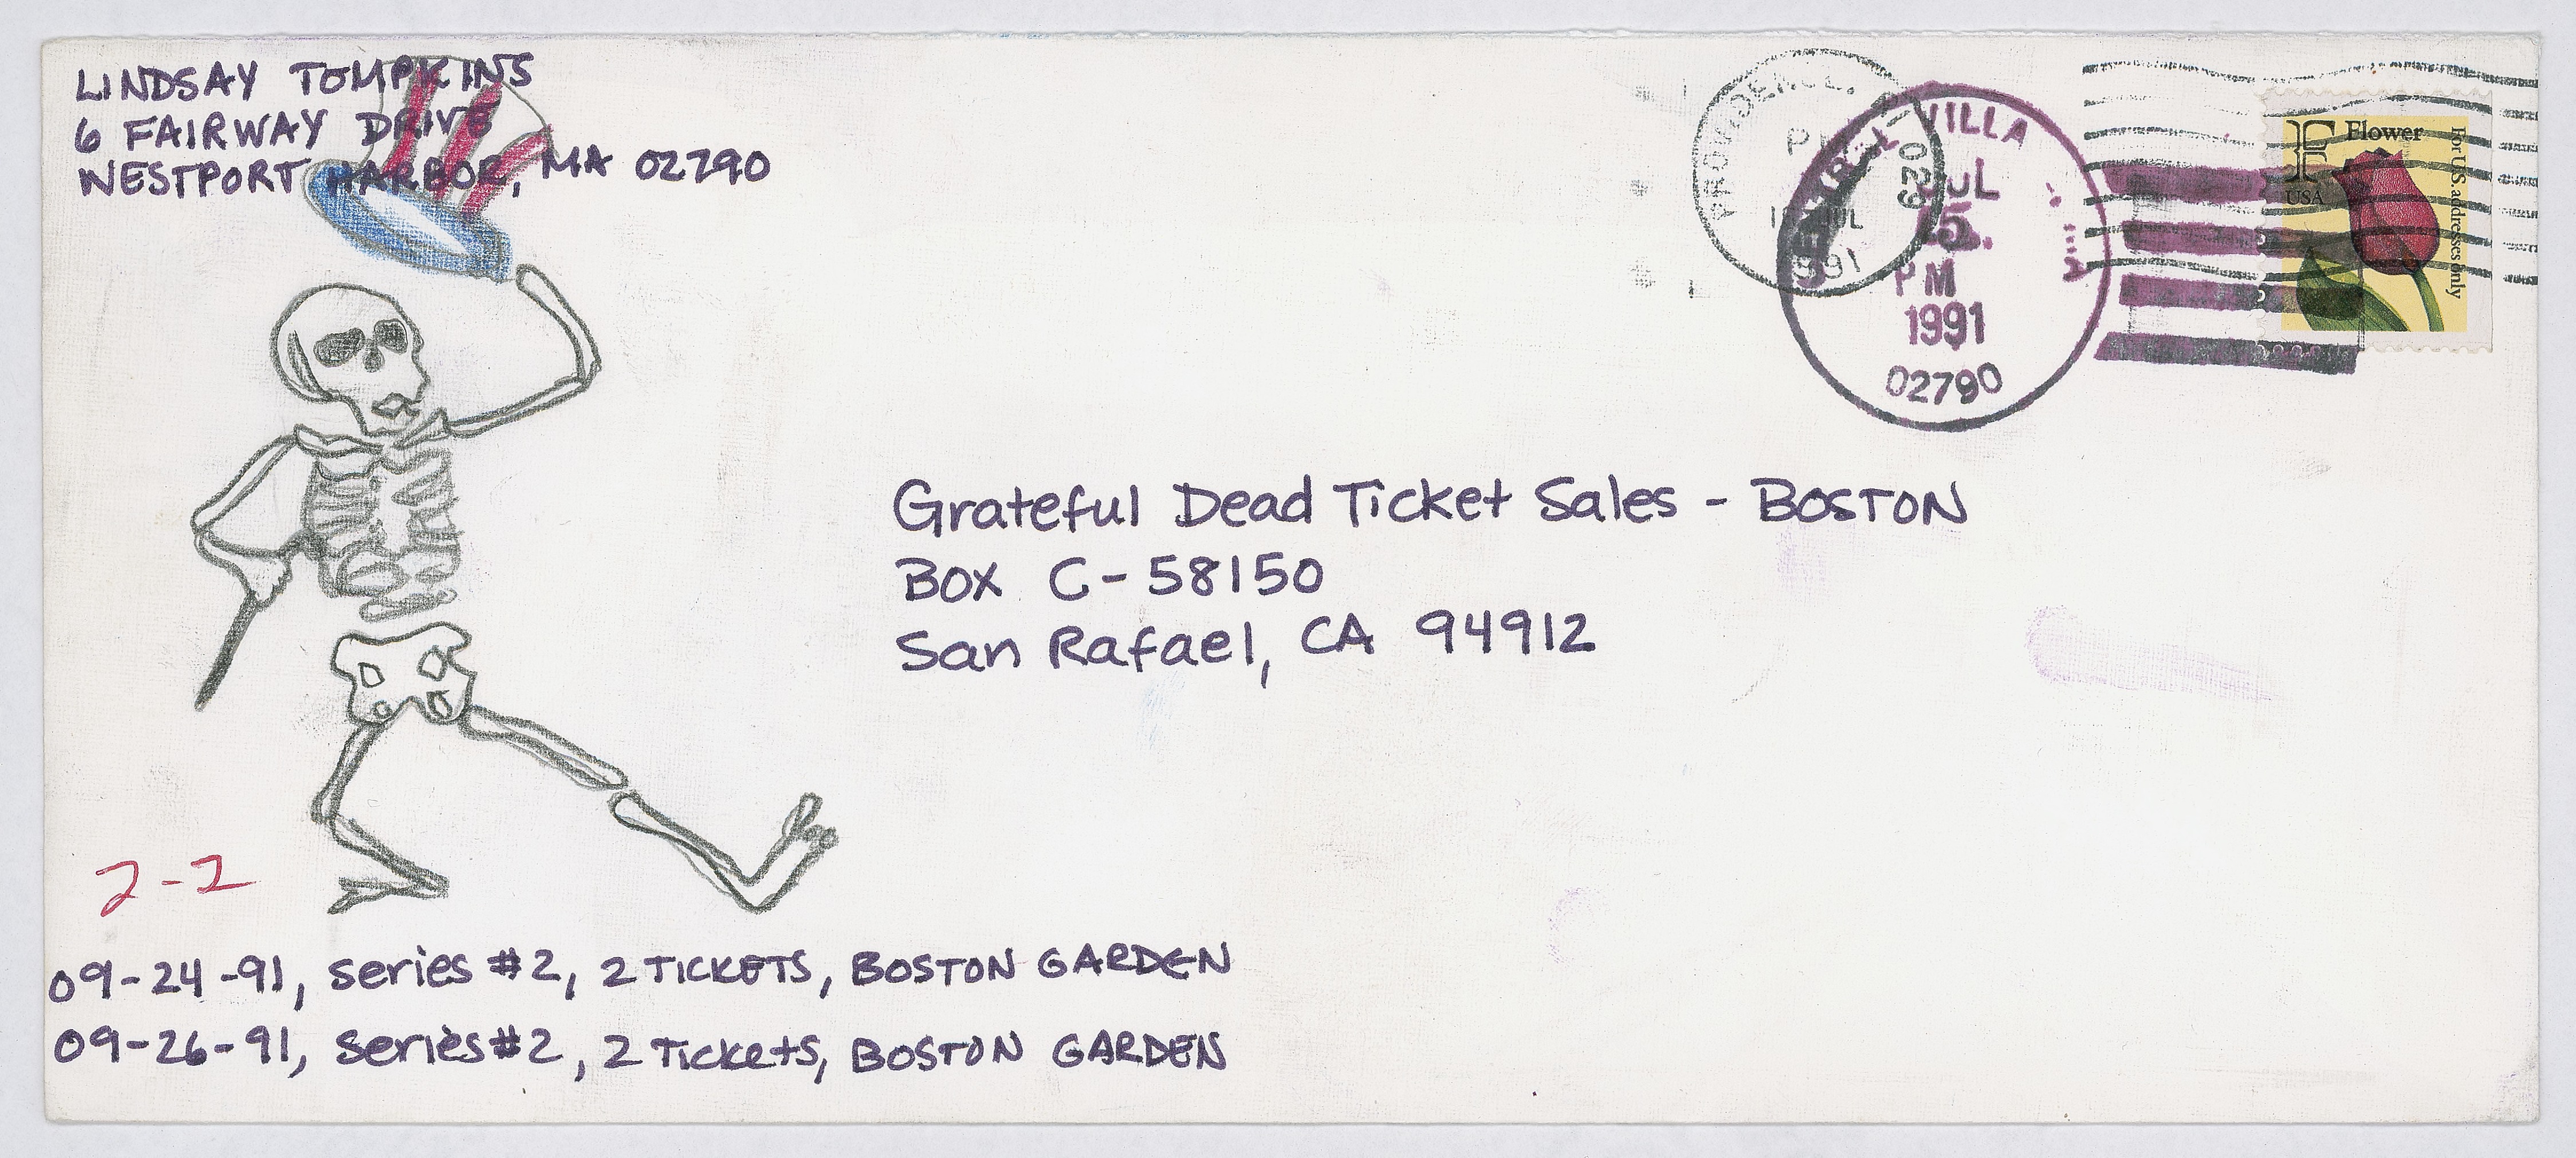 LINDSAY TOMPKINS
6 FAIRWAY DRIVE
WESTPORT HARBOR, MA 02790
PROVIDENCE, RI 029
PM
JUL
1991
VILLA
JUL
15
PM
1991
02790
F Flower
USA
For U.S. addresses only
Grateful Dead Ticket Sales - BOSTON
BOX C-58150
San Rafael, CA 94912
2-2
09-24-91, series #2, 2 TICKETS, BOSTON GARDEN
09-26-91, series #2, 2 Tickets, BOSTON GARDEN